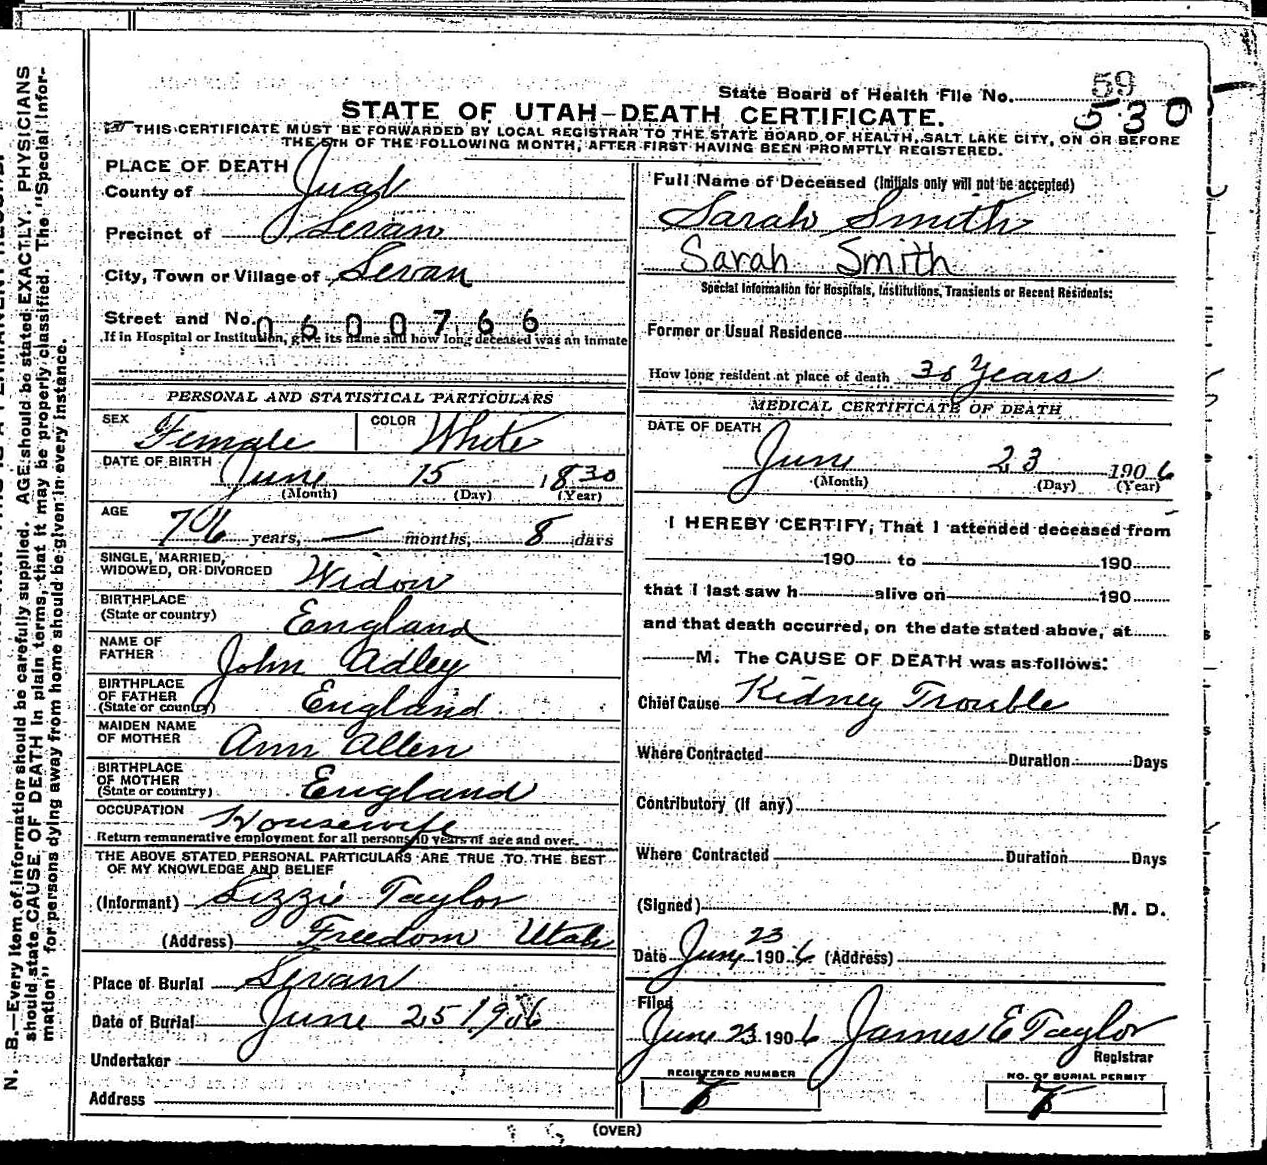 59
State Board of Health File No. 530
STATE OF UTAH—DEATH CERTIFICATE.
THIS CERTIFICATE MUST BE FORWARDED BY LOCAL REGISTRAR TO THE STATE BOARD OF HEALTH, SALT LAKE CITY, ON OR BEFORE
THE 5TH OF THE FOLLOWING MONTH, AFTER FIRST HAVING BEEN PROMPTLY REGISTERED.
PLACE OF DEATH
County of Juab
Precinct of Levan
City, Town or Village of Levan
Street and No. 0600766
If in Hospital or Institution, give its name and how long deceased was an inmate
PERSONAL AND STATISTICAL PARTICULARS
SEX Female COLOR White
DATE OF BIRTH June 15 1830
(Month) (Day) (Year)
AGE 76 years, — months, 8 days
SINGLE, MARRIED,
WIDOWED, OR DIVORCED Widow
BIRTHPLACE
(State or country) England
NAME OF
FATHER John Adley
BIRTHPLACE
OF FATHER
(State or country) England
MAIDEN NAME
OF MOTHER Ann Allen
BIRTHPLACE
OF MOTHER
(State or country) England
OCCUPATION Housewife
Return remunerative employment for all persons 10 years of age and over.
THE ABOVE STATED PERSONAL PARTICULARS ARE TRUE TO THE BEST
OF MY KNOWLEDGE AND BELIEF
(Informant) Lizzie Taylor
(Address) Freedom Utah
Place of Burial Levan
Date of Burial June 25 1906
Undertaker
Address
Full Name of Deceased (Initials only will not be accepted)
Sarah Smith
Sarah Smith
Special Information for Hospitals, Institutions, Transients or Recent Residents:
Former or Usual Residence
How long resident at place of death 38 Years
MEDICAL CERTIFICATE OF DEATH
DATE OF DEATH
June 23 1906
(Month) (Day) (Year)
I HEREBY CERTIFY, That I attended deceased from
190 to 190
that I last saw h alive on 190
and that death occurred, on the date stated above, at
M. The CAUSE OF DEATH was as follows:
Chief Cause Kidney Trouble
Where Contracted Duration Days
Contributory (if any)
Where Contracted Duration Days
(Signed) M. D.
Date June 23 1906 (Address)
Filed
June 23 1906 James E Taylor
Registrar
REGISTERED NUMBER NO. OF BURIAL PERMIT
(OVER)
N. B.—Every item of information should be carefully supplied. AGE should be stated EXACTLY. PHYSICIANS
should state CAUSE OF DEATH in plain terms, that it may be properly classified. The "Special Infor-
mation" for persons dying away from home should be given in every instance.